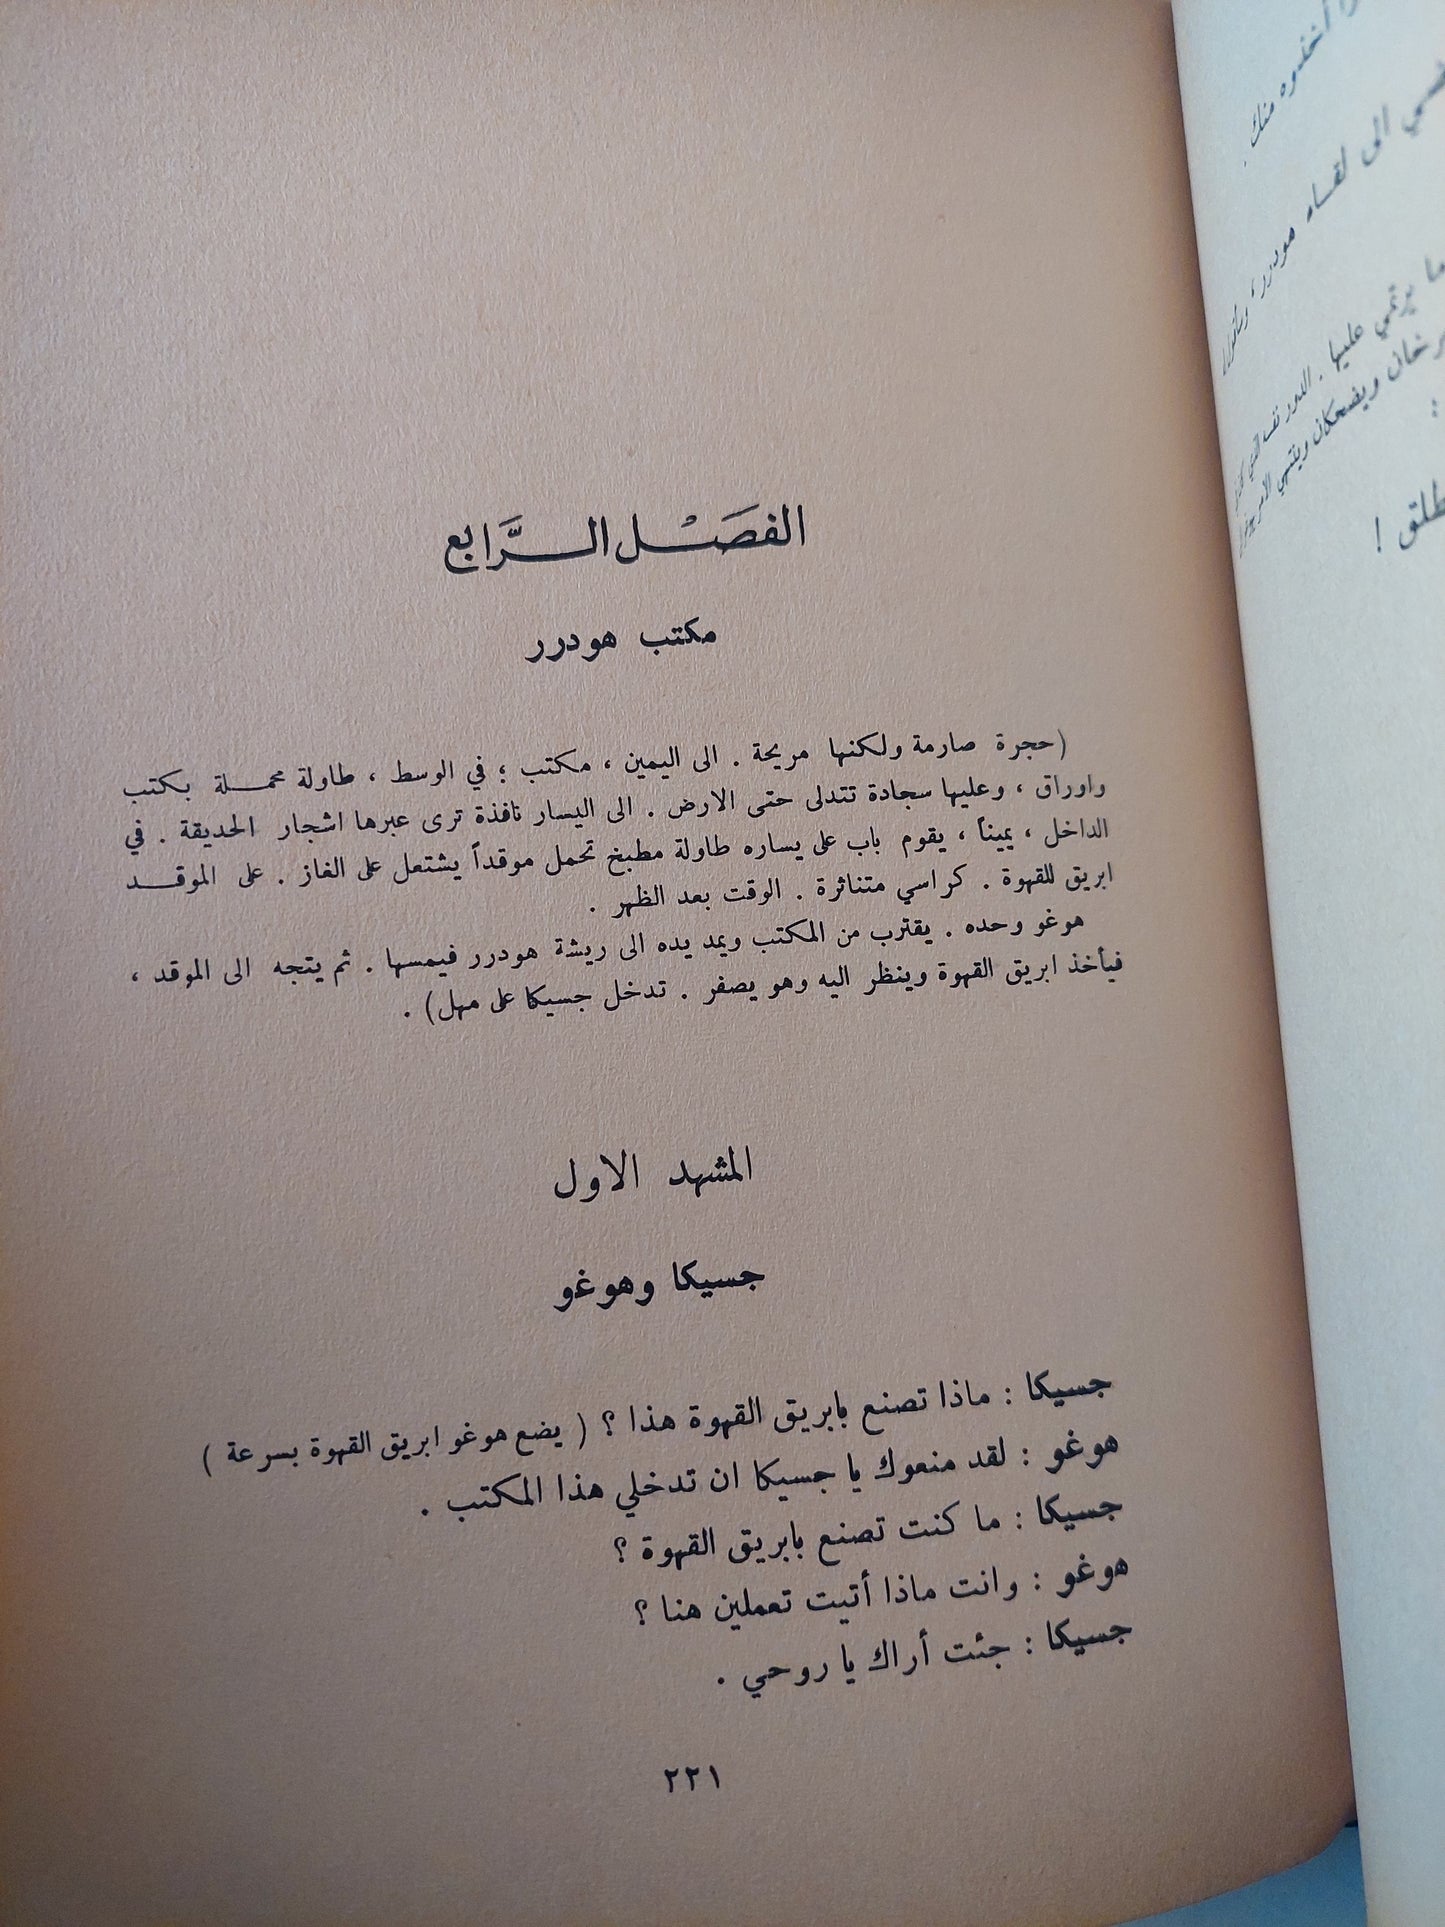 الفَصَـْـل الـرَّابع
مكتب هودرر
(حجرة صارمة ولكنها مريحة . الى اليمين ، مكتب ؛ في الوسط ، طاولة محملة بكتب
واوراق ، وعليها سجادة تتدلى حتى الارض . الى اليسار نافذة ترى عبرها اشجار الحديقة . في
الداخل ، يميناً ، يقوم باب على يساره طاولة مطبخ تحمل موقداً يشتعل على الغاز . على الموقد
ابريق للقهوة . كراسي متناثرة . الوقت بعد الظهر .
هوغو وحده . يقترب من المكتب ويمد يده الى ريشة هودرر فيمسها . ثم يتجه الى الموقد ،
فيأخذ ابريق القهوة وينظر اليه وهو يصفر . تدخل جسيكا على مهل) .
المشهد الاول
جسيكا وهوغو
جسيكا : ماذا تصنع بابريق القهوة هذا ؟ ( يضع هوغو ابريق القهوة بسرعة )
هوغو : لقد منعوك يا جسيكا ان تدخلي هذا المكتب .
جسيكا : ما كنت تصنع بابريق القهوة ؟
هوغو : وانت ماذا أتيت تعملين هنا ؟
جسيكا : جئت أراك يا روحي .
٢٢١
أخذوه منك .
الى لقاء هودرر ،
يرتمي عليها . الدور نفسه الذي
ويضحكان وينتهي الامر
!